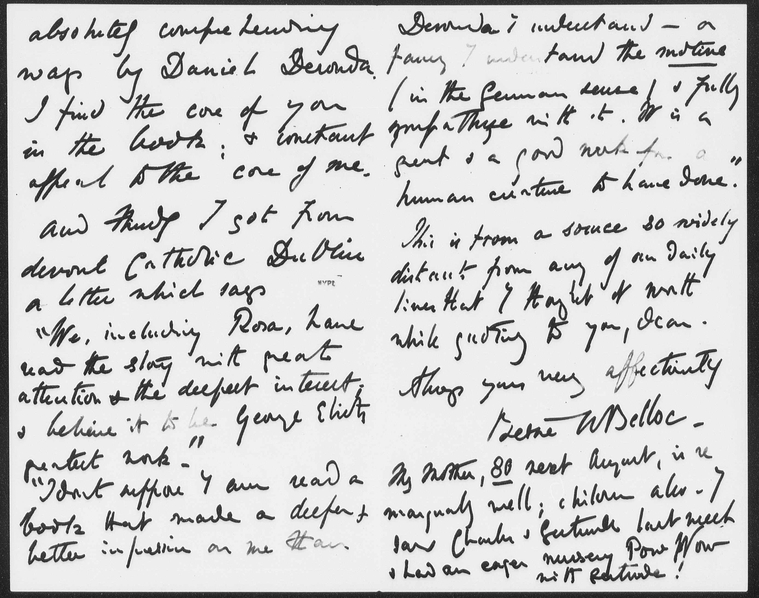 absolutely comprehending
ways by Daniel Deronda.
I find the core of you
in the book; & constant
appeal to the core of me.
And I got from
devout Catholic Dublin
a letter which says
"We, including Rosa, have
read the story with great
attention & the deepest interest;
& believe it to be George Eliot's
greatest work."
"I don't suppose I ever read a
book that made a deeper &
better impression on me than
Deronda. I understand – or
fancy I understand the motive
(in the German sense) & fully
sympathise with it. It is a
great & a good work for a
human creature to have done."
This is from a source so widely
distant from any of our daily
lives that I thought it worth
while quoting to you, dear.
Always yours very affectionately
Bessie R Belloc –
My Mother, 80 next August, is re
markably well; children also. I
saw Charles & Gertrude last week
& had an eager nursery Pow Wow
with Gertrude!